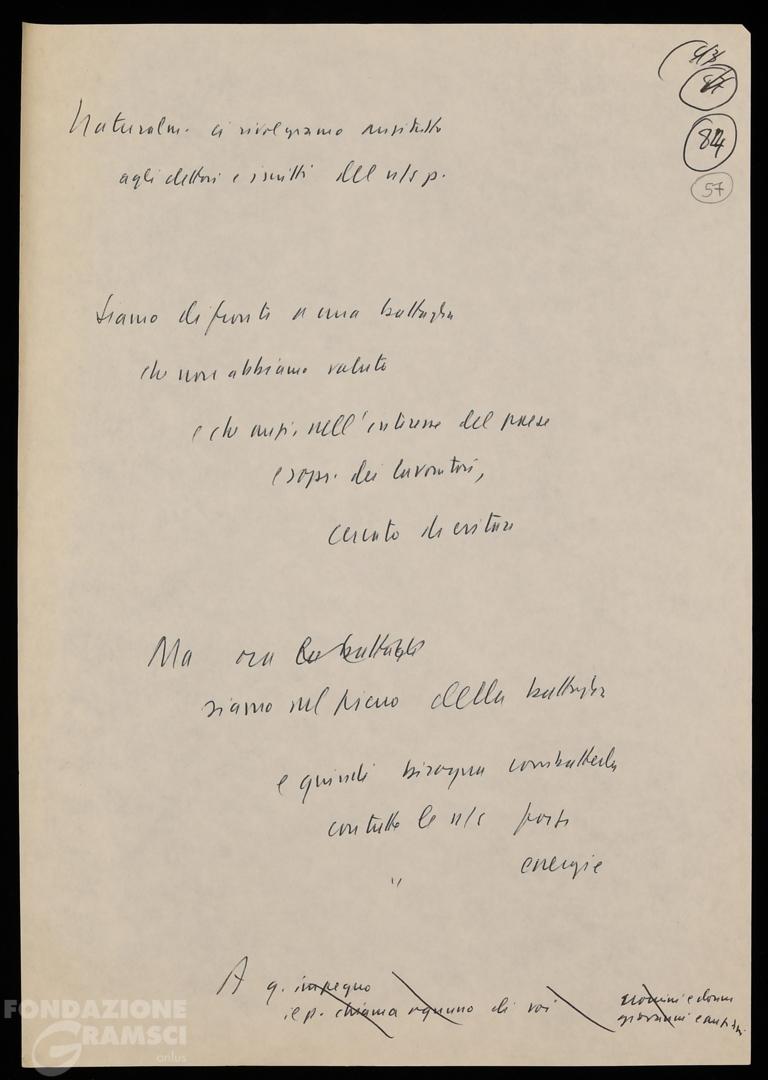 84
57
Naturalm. ci rivolgiamo anzitutto
agli elettori e iscritti del n/s p.
Siamo di fronte a una battaglia
che non abbiamo voluto
e che anzi, nell'interesse del paese
e sopr. dei lavoratori,
cercato di evitare
Ma ora la battaglia
siamo nel pieno della battaglia
e quindi bisogna combatterla
con tutte le n/s forze
energie
"
A q. impegno
il p. chiama ognuno di voi
uomini e donne
giovanni e anziani
FONDAZIONE
GRAMSCI
onlus